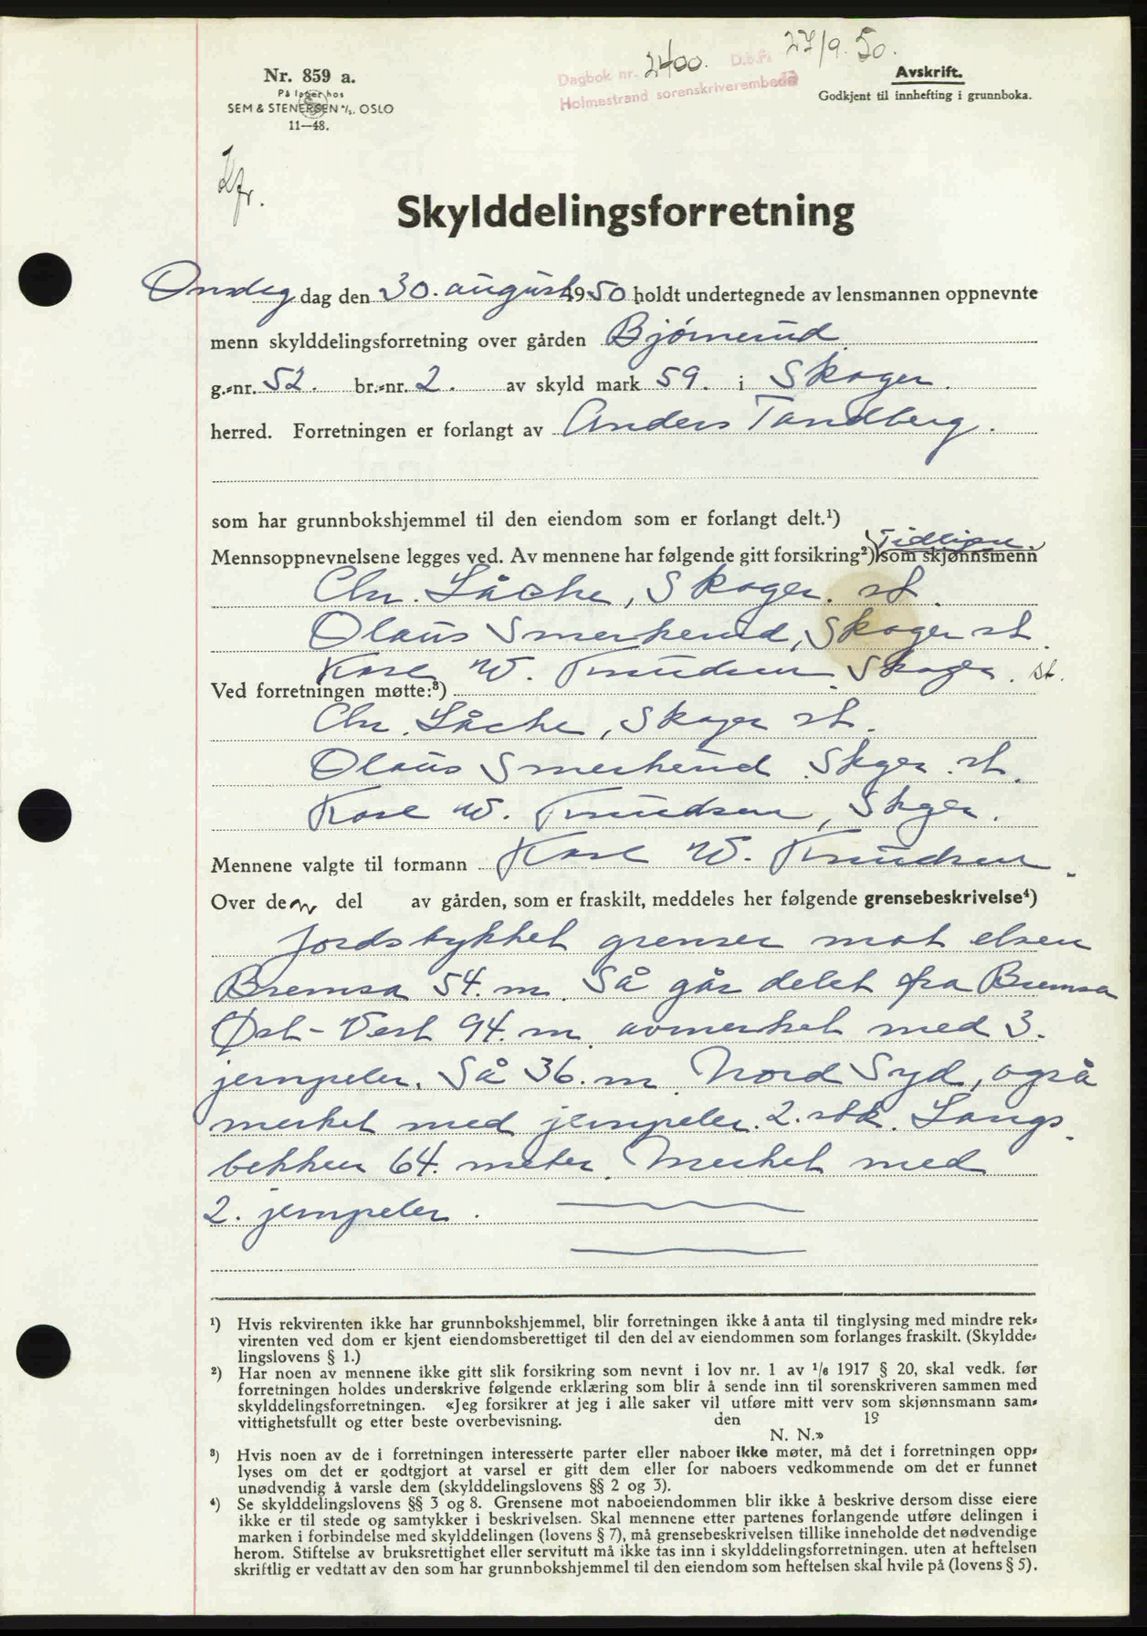 27/9. 50.
Nr. 859 a.
På lager hos
SEM & STENERSEN A/S. OSLO
11—48.
Dagbok nr. 2400. D.b.f.
Holmestrand sorenskriverembede
Avskrift.
Godkjent til innhefting i grunnboka.
Kfr.
Skylddelingsforretning
Onsdag dag den 30. august 1950 holdt undertegnede av lensmannen oppnevnte
menn skylddelingsforretning over gården Bjørnerud
g.-nr. 52. br.-nr. 2. av skyld mark 59. i Skoger.
herred. Forretningen er forlangt av Anders Tandberg.
som har grunnbokshjemmel til den eiendom som er forlangt delt.¹)
Tidligere
Mennsoppnevnelsene legges ved. Av mennene har følgende gitt forsikring²) som skjønnsmenn
Chr. Låche, Skoger. st.
Olaus Smerkerud, Skoger st.
Kare W. Knudsen. Skoger. st.
Ved forretningen møtte:³)
Chr. Låche, Skoger st.
Olaus Smerkerud. Skger. st.
Kare W. Knudsen, Skger.
Mennene valgte til formann Kare W. Knudsen.
Over den del av gården, som er fraskilt, meddeles her følgende grensebeskrivelse⁴)
Jordstykket grenser mot elven
Bremsa 54. m. Så går delet fra Bremsa
Øst - Vest 94. m. avmerket med 3.
jernpeler. Så 36. m. Nord Syd, også
merket med jernpeler. 2. stk. Langs.
bekken 64. meter. Merket med
2. jernpeler.
¹) Hvis rekvirenten ikke har grunnbokshjemmel, blir forretningen ikke å anta til tinglysing med mindre rek-
virenten ved dom er kjent eiendomsberettiget til den del av eiendommen som forlanges fraskilt. (Skyldde-
lingslovens § 1.)
²) Har noen av mennene ikke gitt slik forsikring som nevnt i lov nr. 1 av 1/6 1917 § 20, skal vedk. før
forretningen holdes underskrive følgende erklæring som blir å sende inn til sorenskriveren sammen med
skylddelingsforretningen. «Jeg forsikrer at jeg i alle saker vil utføre mitt verv som skjønnsmann sam-
vittighetsfullt og etter beste overbevisning. den 19
N. N.»
³) Hvis noen av de i forretningen interesserte parter eller naboer ikke møter, må det i forretningen opp-
lyses om det er godtgjort at varsel er gitt dem eller for naboers vedkommende om det er funnet
unødvendig å varsle dem (skylddelingslovens §§ 2 og 3).
⁴) Se skylddelingslovens §§ 3 og 8. Grensene mot naboeiendommen blir ikke å beskrive dersom disse eiere
ikke er til stede og samtykker i beskrivelsen. Skal mennene etter partenes forlangende utføre delingen i
marken i forbindelse med skylddelingen (lovens § 7), må grensebeskrivelsen tillike inneholde det nødvendige
herom. Stiftelse av bruksrettighet eller servitutt må ikke tas inn i skylddelingsforretningen. uten at heftelsen
skriftlig er vedtatt av den som har grunnbokshjemmel til den eiendom som heftelsen skal hvile på (lovens § 5).